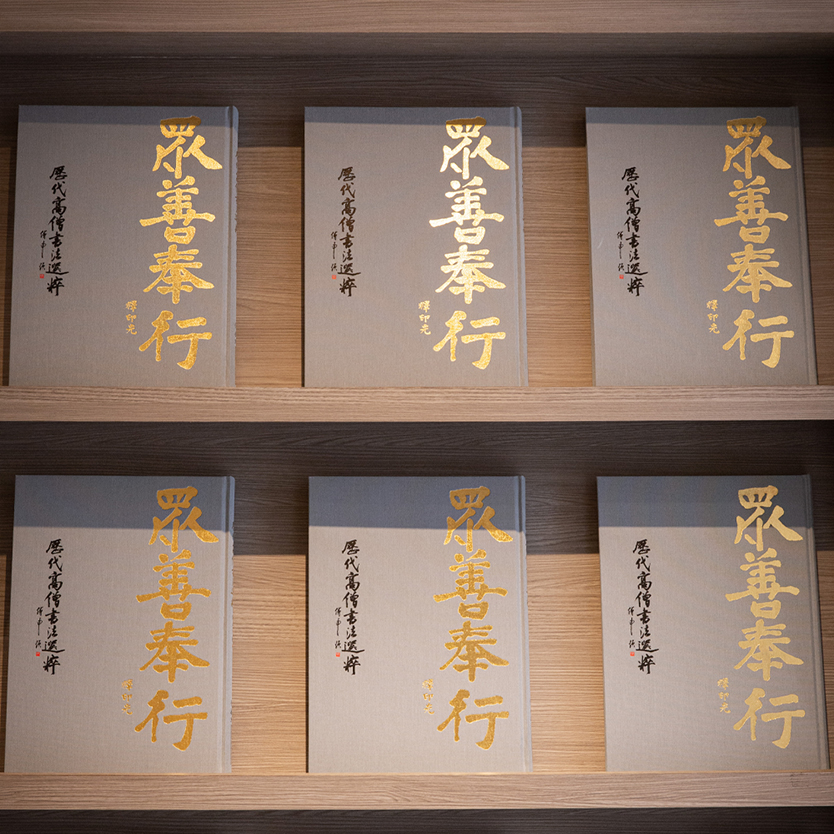 眾善奉行
釋印光
歷代高僧書法選粹
傅申
眾善奉行
釋印光
歷代高僧書法選粹
傅申
眾善奉行
釋印光
歷代高僧書法選粹
傅申
眾善奉行
釋印光
歷代高僧書法選粹
傅申
眾善奉行
釋印光
歷代高僧書法選粹
傅申
眾善奉行
釋印光
歷代高僧書法選粹
傅申